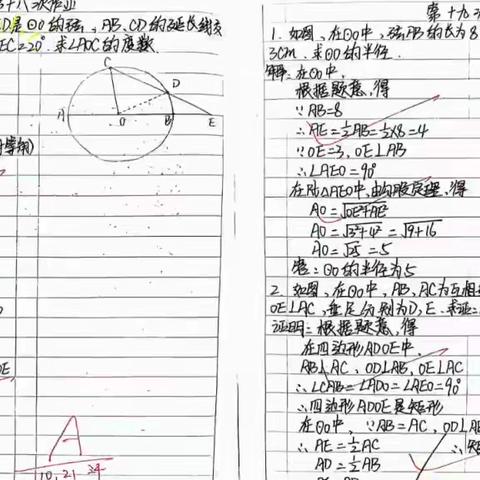 十八次作业
CD是⊙O的弦, AB、CD的延长线交
EC=20°. 求∠AOC的度数.
C
D
A
O
B
E
OE
A
10.21
第十九
1. 如图, 在⊙O中, 弦AB的长为8
3cm. 求⊙O的半径.
解: 在⊙O中,
根据题意, 得
∵AB=8
∴AE=½AB=½×8=4
∵OE=3, OE⊥AB
∴∠AEO=90°
在Rt△AEO中, 由勾股定理, 得
AO=√OE²+AE²
AO=√3²+4²=√9+16
AO=√25=5
答: ⊙O的半径为5
2. 如图, 在⊙O中, AB、AC为互相
OE⊥AC, 垂足分别为D、E. 求证:
证明: 根据题意, 得
在四边形ADOE中,
AB⊥AC, OD⊥AB, OE⊥AC
∴∠CAB=∠ADO=∠AEO=90°
∴四边形ADOE是矩形
在⊙O中, ∵AB=AC, OD⊥AB
∴AE=½AC
AD=½AB